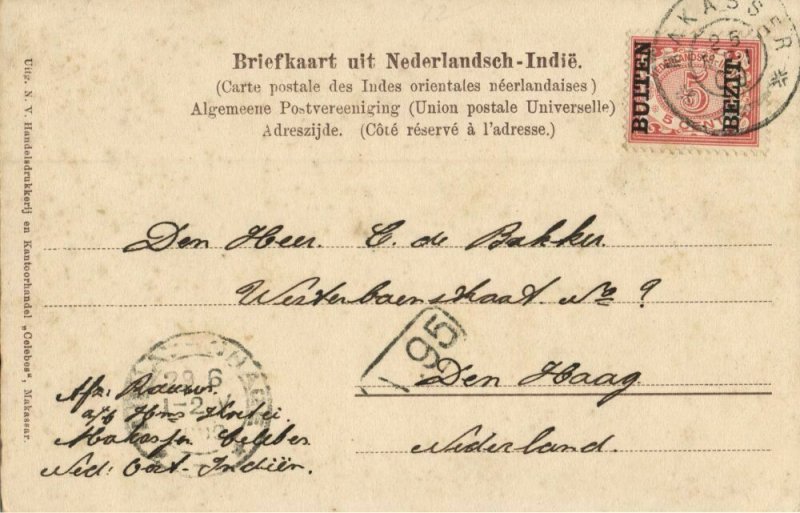 Briefkaart uit Nederlandsch-Indië.
(Carte postale des Indes orientales néerlandaises)
Algemeene Postvereeniging (Union postale Universelle)
Adreszijde. (Côté réservé à l'adresse.)
MAKASSER
BUITEN
BEZIT
5 CENT
Uitg. N. V. Handelsdrukkerij en Kantoorhandel „Celebes", Makassar.
Den Heer. C. de Bakker.
Westerbaenstraat No
195
Den Haag
Nederland.
29.6
Afz:
a/b Hms
Makasser Celebes
Ned: Oost-Indiën.